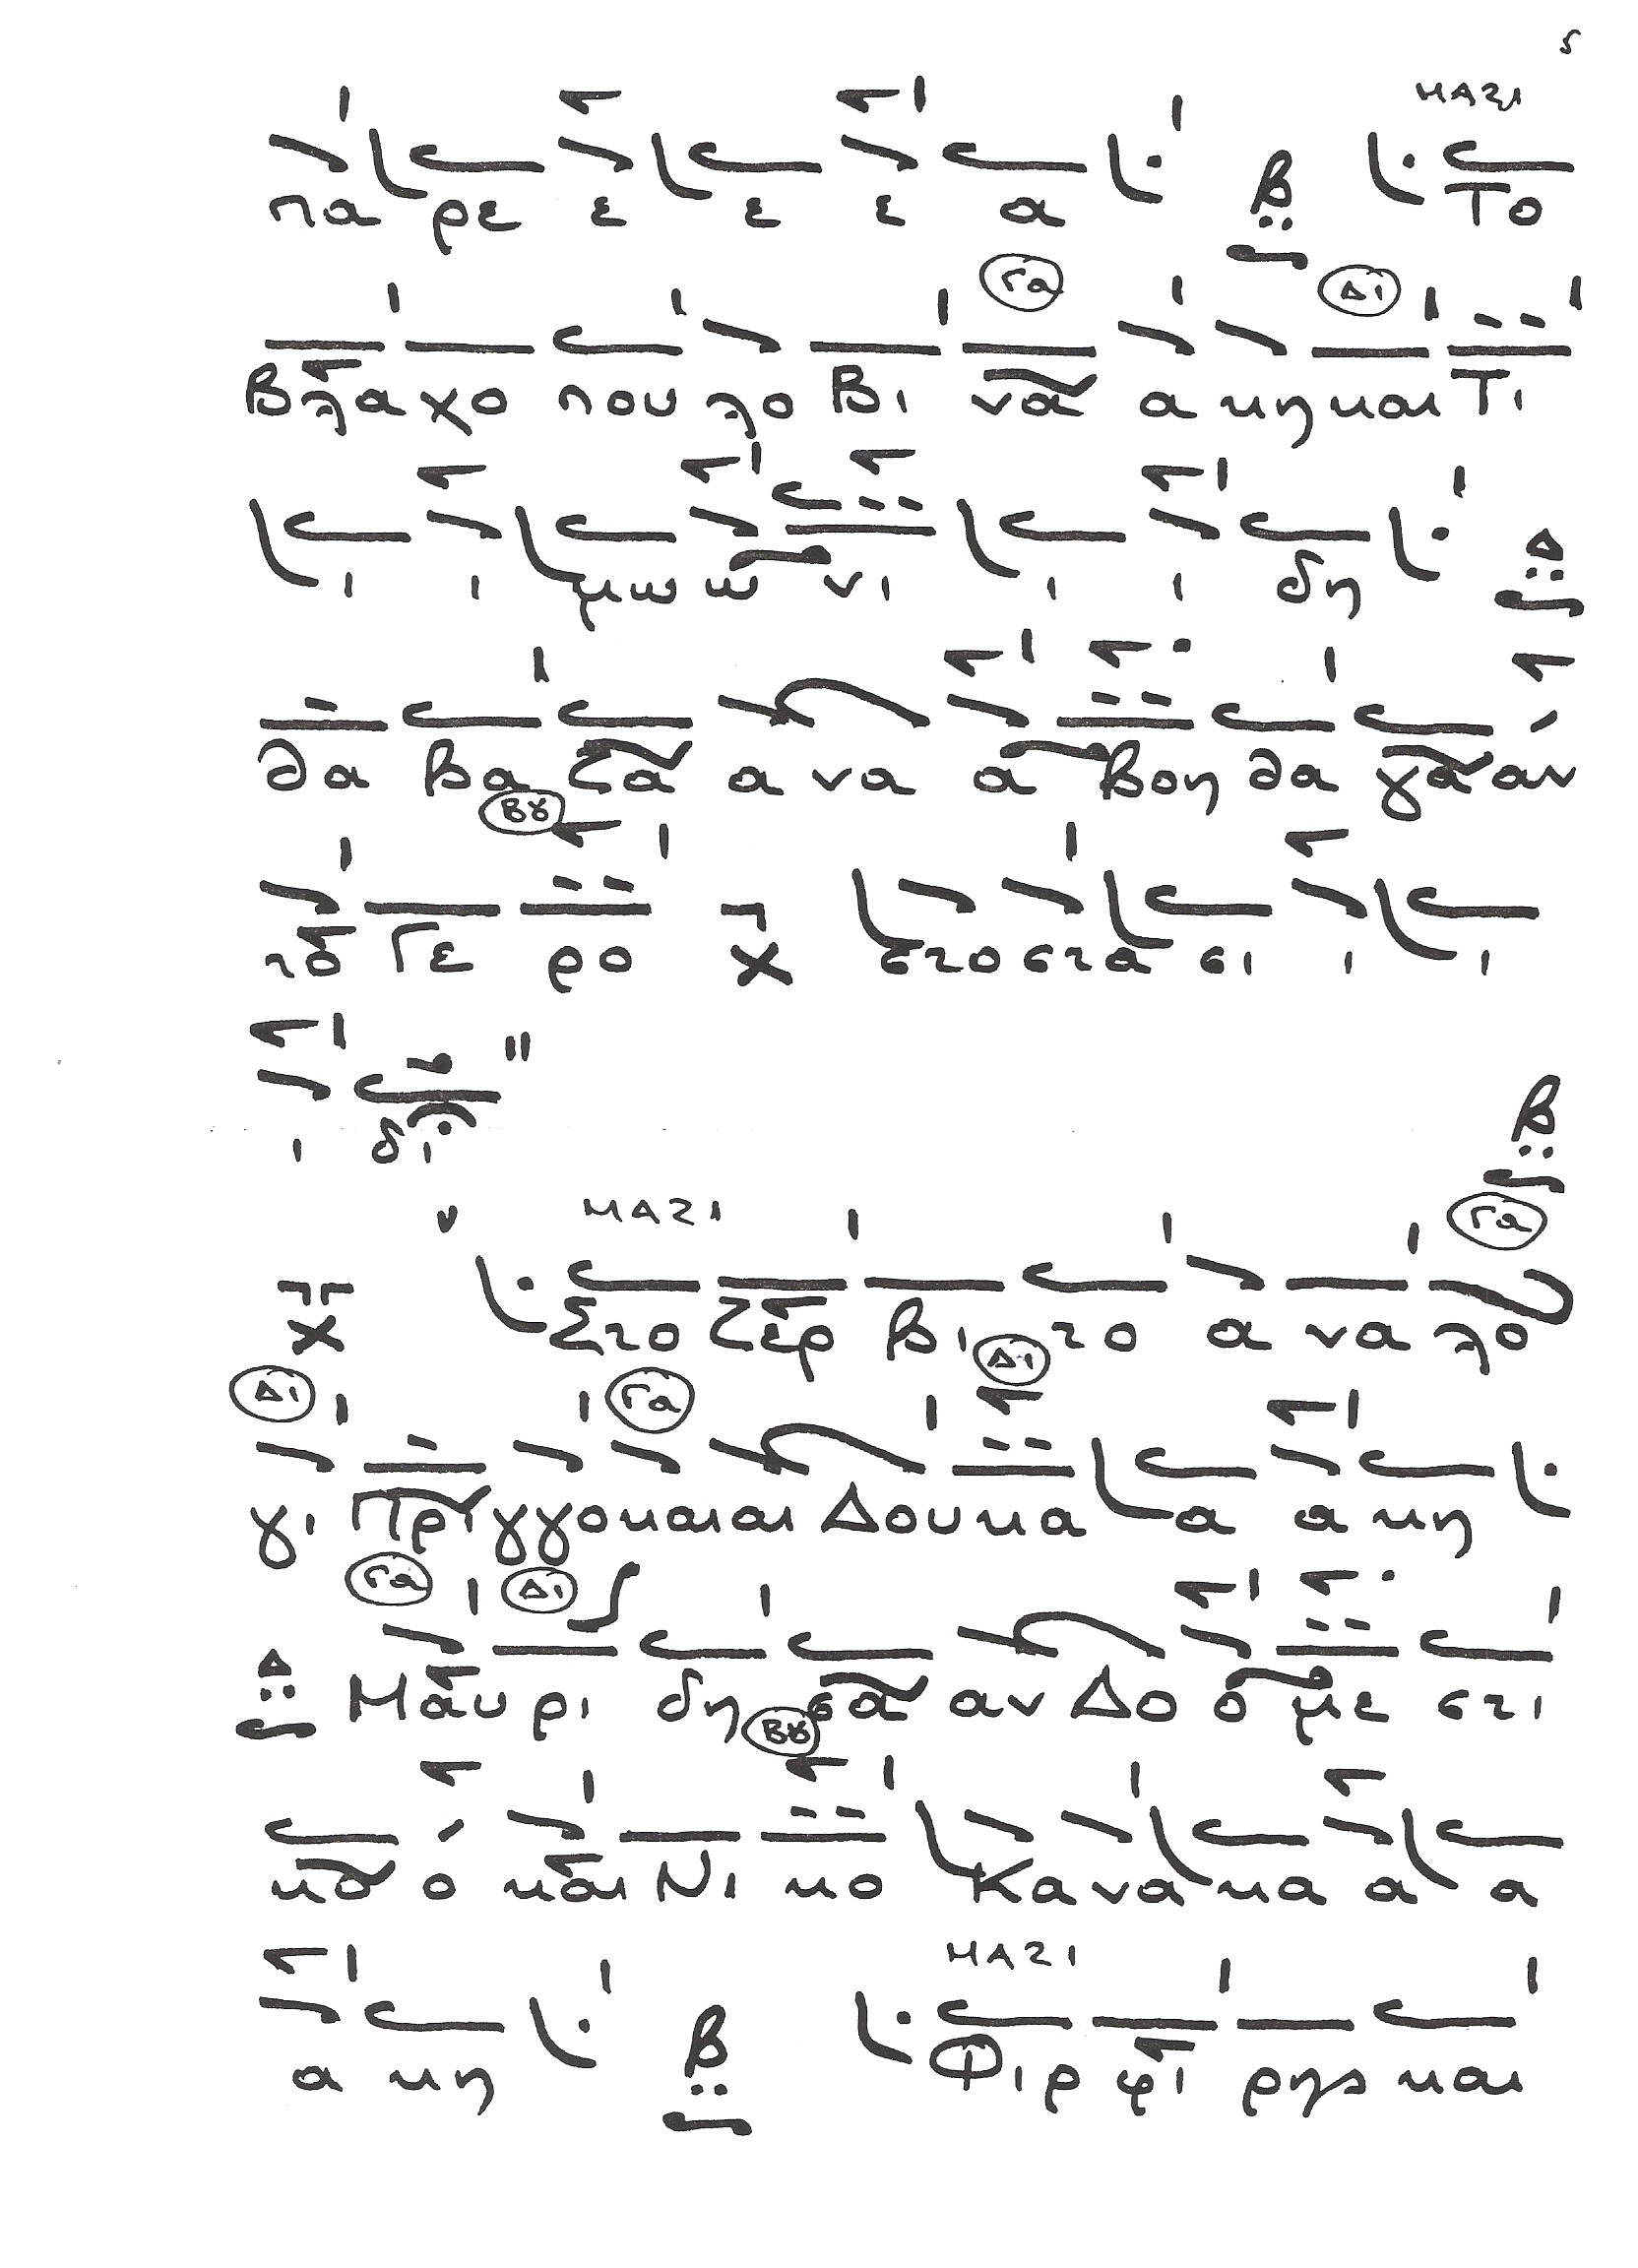 5
ΜΑΖΙ
πα ρε ε ε ε α Β Το
Γα Δι
Βλα χο που λο Βι να α κη και Τι
ι ι μω ω νι ι ι δη Δ
θα Βα ζα α να α Βοη θα γα αν
Βου
το Γε ρο χ στο στα σι ι ι
ι δι
Β
ΜΑΖΙ Γα
χ Στο Ζερ Βι το α να λο
Δι Γα Δι
γι Πρι γγο και αι Δου κα α α κη
Γα Δι
Δ Μαυ ρι δη σα αν Δο ο με στι
Βου
κο ο και Νι κο Κα να κα α α
ΜΑΖΙ
α κη Β Φιρ φι ρης και